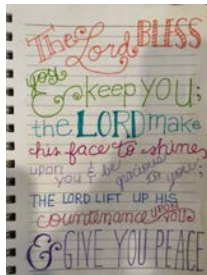 The Lord BLESS
you
& keep YOU;
the LORD make
his face to shine
upon you & be gracious to you;
THE LORD LIFT UP HIS
countenance upon you
& GIVE YOU PEACE